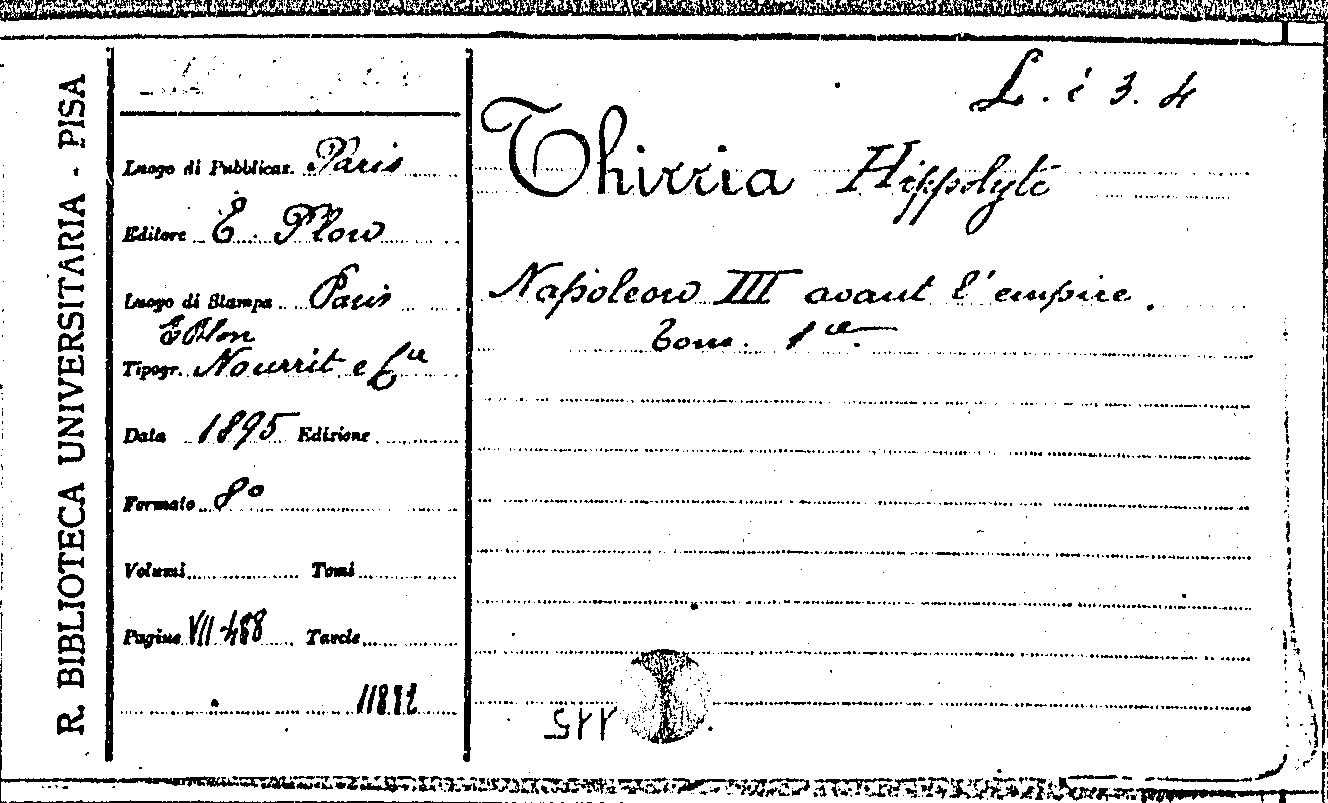 R. BIBLIOTECA UNIVERSITARIA - PISA
Luogo di Pubblicaz. Paris
Editore E. Plon
Luogo di Stampa Paris
E Plon
Tipogr. Nourrit e Cie
Data 1895 Edizione
Formato 8°
Volumi Tomi
Pagine VII-488 Tavole
L. i 3. 4
Thirria Hippolyte
Napoleon III avant l'empire.
Tom. 1er.